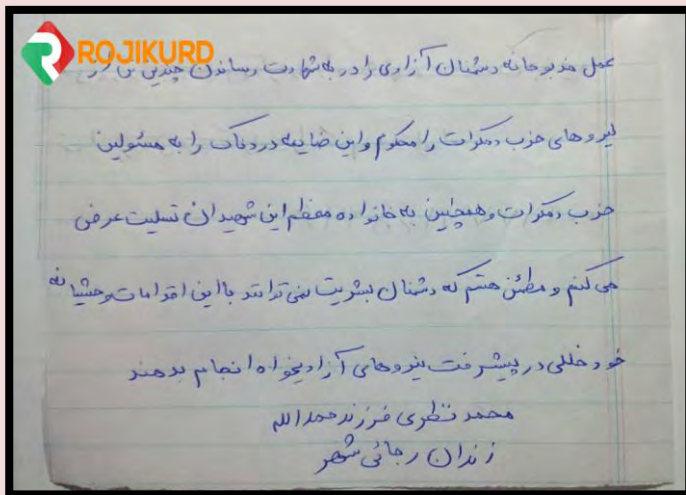 ROJIKURD
عمل مذبوحانه دشمنان آزادی را در به شهادت رساندن چندین تن از
نیروهای حزب دمکرات را محکوم و این ضایعه دردناک را به مسئولین
حزب دمکرات و همچنین به خانواده معظم این شهیدان تسلیت عرض
می کنم و مطئن هستم که دشمنان بشریت نمی توانند با این اقدامات وحشیانه
خود خللی در پیشرفت نیروهای آزادیخواه انجام بدهند
محمد نظری فرزند حمدالله
زندان رجائی شهر